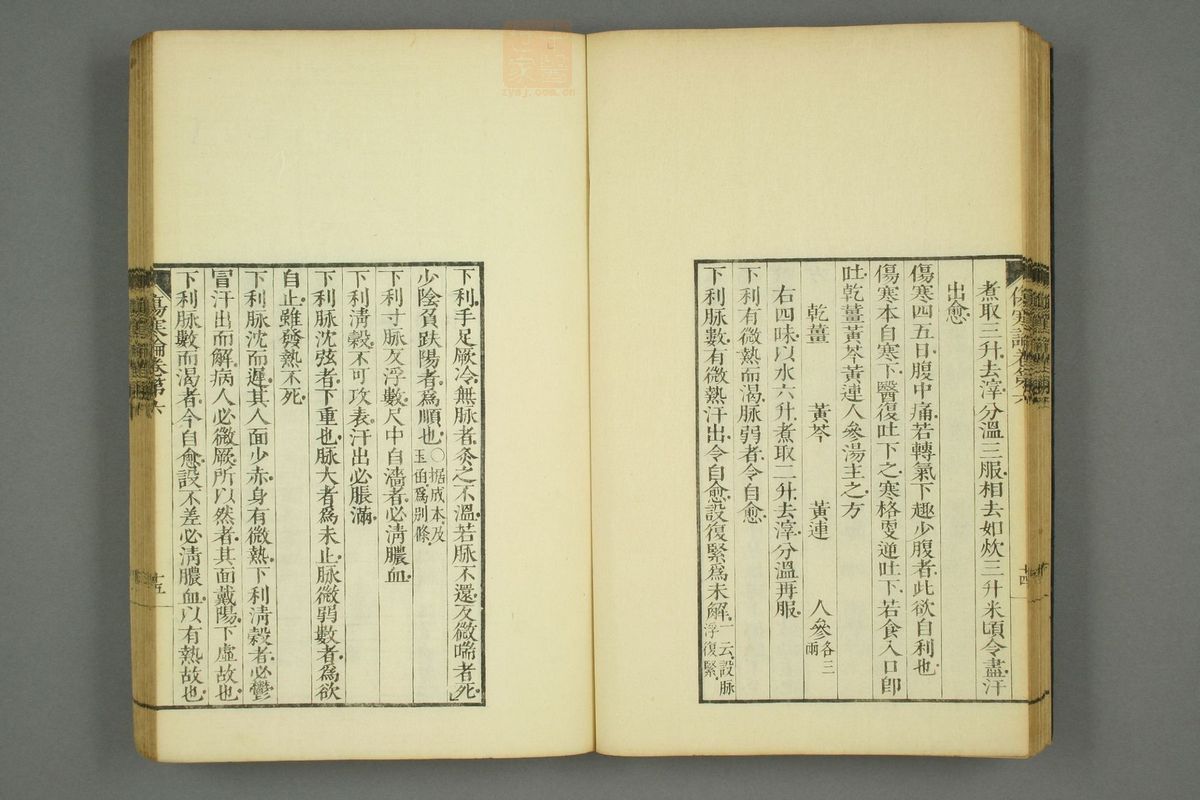 煮取三升去滓分溫三服相去如炊三升米頃令盡汗
出愈
傷寒四五日腹中痛若轉氣下趣少腹者此欲自利也
傷寒本自寒下醫復吐下之寒格更逆吐下若食入口卽
吐乾薑黃芩黃連人參湯主之方
乾薑 黃芩 黃連 人參各三兩
右四味以水六升煮取二升去滓分溫再服
下利有微熱而渴脉弱者令自愈
下利脉數有微熱汗出令自愈設復緊爲未解一云設脉浮復緊
十四
下利手足厥冷無脉者灸之不溫若脉不還反微喘者死
少陰負趺陽者爲順也〇据成本及玉函爲別條
下利寸脉反浮數尺中自濇者必淸膿血
下利淸穀不可攻表汗出必脹滿
下利脉沈弦者下重也脉大者爲未止脉微弱數者爲欲
自止雖發熱不死
下利脉沈而遲其人面少赤身有微熱下利淸穀者必鬱
冒汗出而解病人必微厥所以然者其面戴陽下虛故也
下利脉數而渴者今自愈設不差必淸膿血以有熱故也
傷寒論卷第六
十五
zysj.com.cn